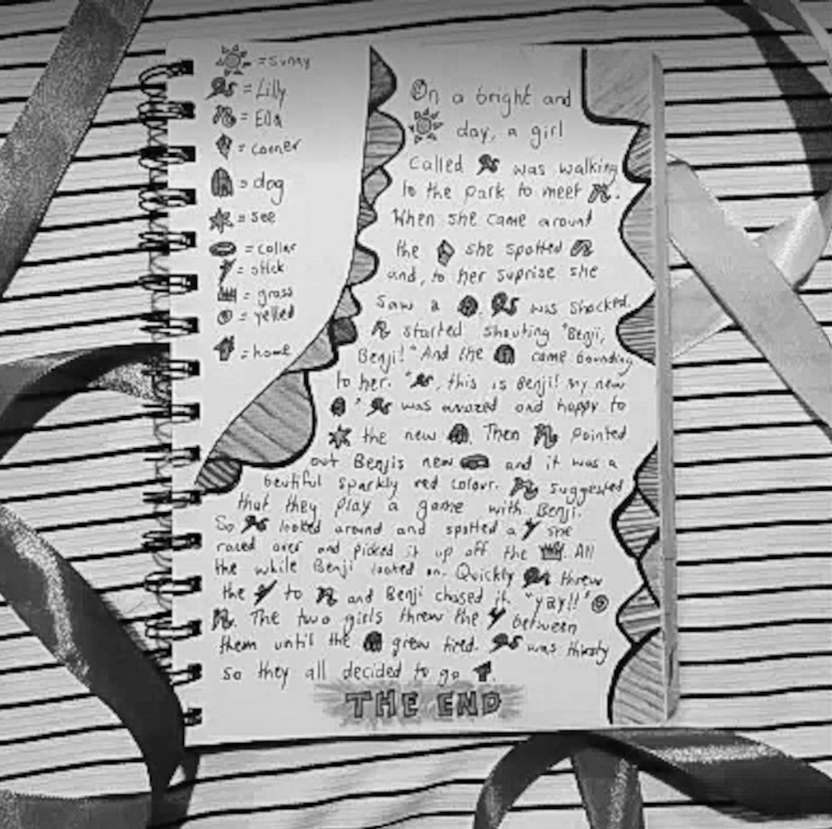 = sunny
= Lilly
= Ella
= corner
= dog
= see
= collar
= stick
= grass
= yelled
= home
On a bright and
day, a girl
called was walking
to the park to meet .
When she came around
the she spotted
and, to her suprise she
saw a . was shocked.
started shouting "Benji,
Benji!" And the came bounding
to her. " , this is Benji! My new
" was amazed and happy to
the new . Then pointed
out Benjis new and it was a
beutiful sparkly red colour. suggested
that they play a game with Benji.
So looked around and spotted a she
raced over and picked it up off the . All
the while Benji looked on. Quickly threw
the to and Benji chased it. "yay!!"
. The two girls threw the between
them until the grew tired. was thirsty
so they all decided to go .
THE END